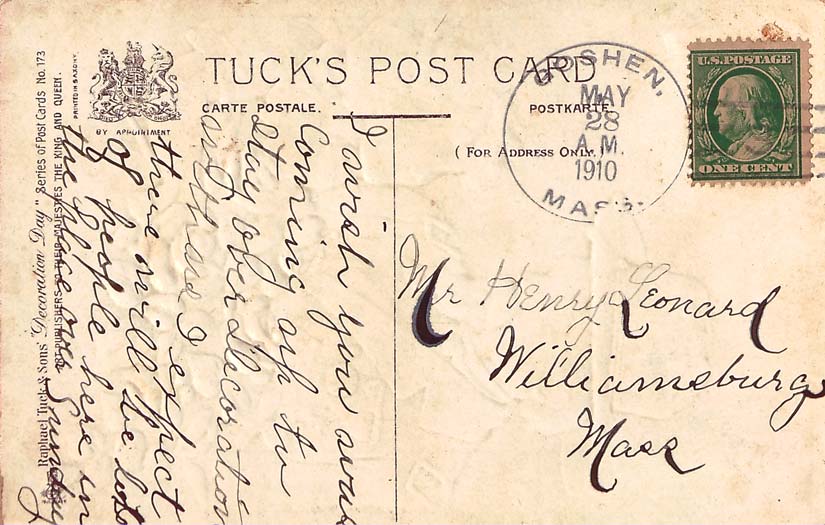 TUCK'S POST CARD
CARTE POSTALE.
POSTKARTE.
(FOR ADDRESS ONLY.)
PRINTED IN SAXONY.
BY APPOINTMENT
Raphael Tuck & Sons' "Decoration Day" Series of Post Cards No. 173
PUBLISHERS TO THEIR MAJESTIES THE KING AND QUEEN.
GOSHEN,
MAY
28
A.M.
1910
MASS.
U.S. POSTAGE
ONE CENT
I wish you was
Coming up to
Stay over Decoration
and here I
there will expect
of people here in
the place over Sunday
Mr Henry Leonard
Williamsburg
Mass